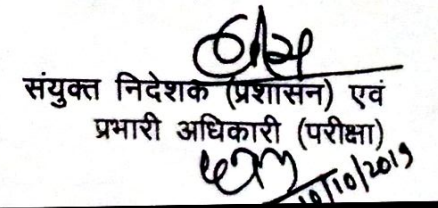 संयुक्त निदेशक (प्रशासन) एवं
प्रभारी अधिकारी (परीक्षा)
10/10/2019